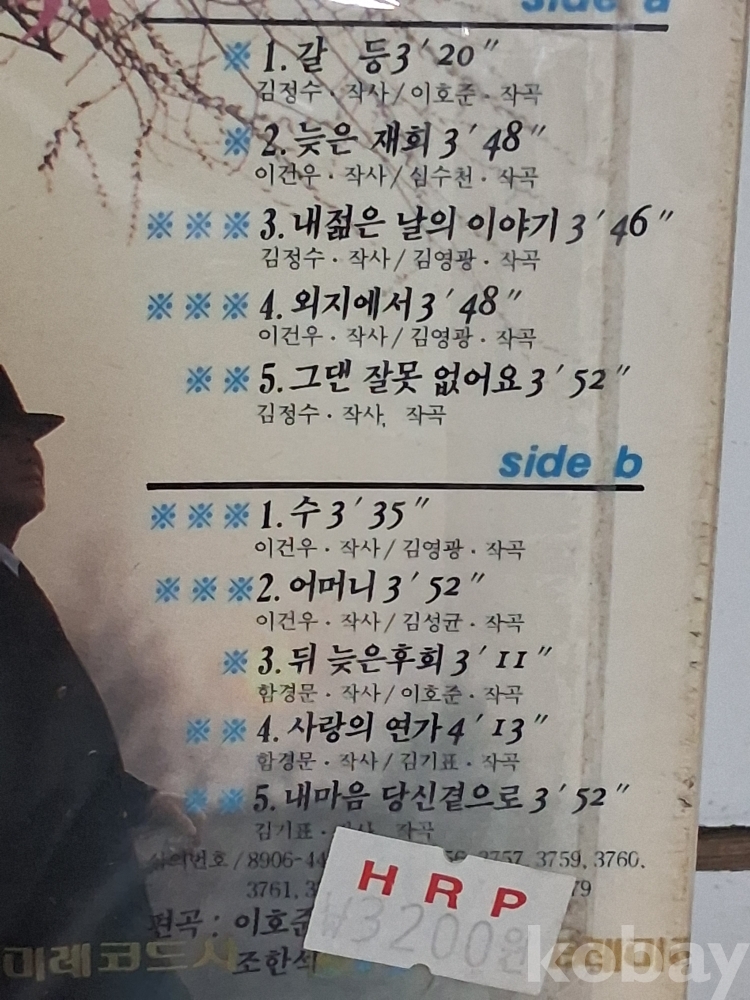 side a
※ 1. 갈 등 3′20″
김정수 · 작사 / 이호준 · 작곡
※ 2. 늦은 재회 3′48″
이건우 · 작사 / 심수천 · 작곡
※ ※ ※ 3. 내젊은 날의 이야기 3′46″
김정수 · 작사 / 김영광 · 작곡
※ ※ ※ 4. 외지에서 3′48″
이건우 · 작사 / 김영광 · 작곡
※ ※ 5. 그댄 잘못 없어요 3′52″
김정수 · 작사, 작곡
side b
※ ※ ※ 1. 수 3′35″
이건우 · 작사 / 김영광 · 작곡
※ ※ ※ 2. 어머니 3′52″
이건우 · 작사 / 김성균 · 작곡
※ 3. 뒤 늦은후회 3′11″
함경문 · 작사 / 이호준 · 작곡
※ ※ 4. 사랑의 연가 4′13″
함경문 · 작사 / 김기표 · 작곡
※ ※ 5. 내마음 당신곁으로 3′52″
김기표 · 작사, 작곡
심의번호 / 8906-44 3757, 3759, 3760.
3761, 3 79
편곡 : 이호준
조한석
HRP
₩3200원
미레코드사
kobay